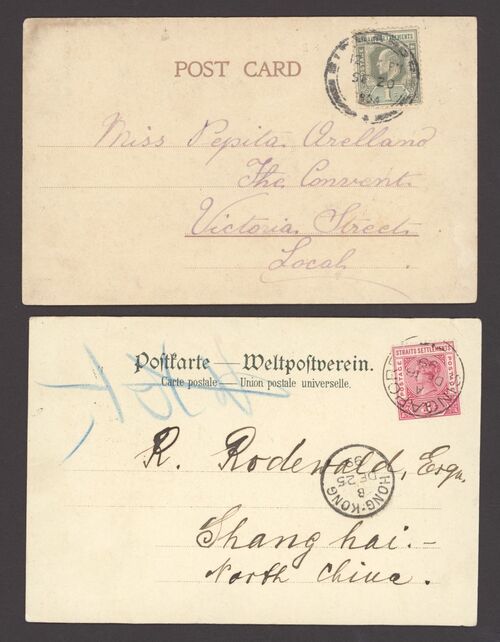 POST CARD
STRAITS SETTLEMENTS
SP 20
1904
Miss Pepita Arellano
The Convent
Victoria Street
Local.
Postkarte — Weltpostverein.
Carte postale — Union postale universelle.
STRAITS SETTLEMENTS
POSTAGE
SINGAPORE
R. Rodewald, Esqu.
HONG-KONG
B
DE 25
99
Shanghai. —
North China.